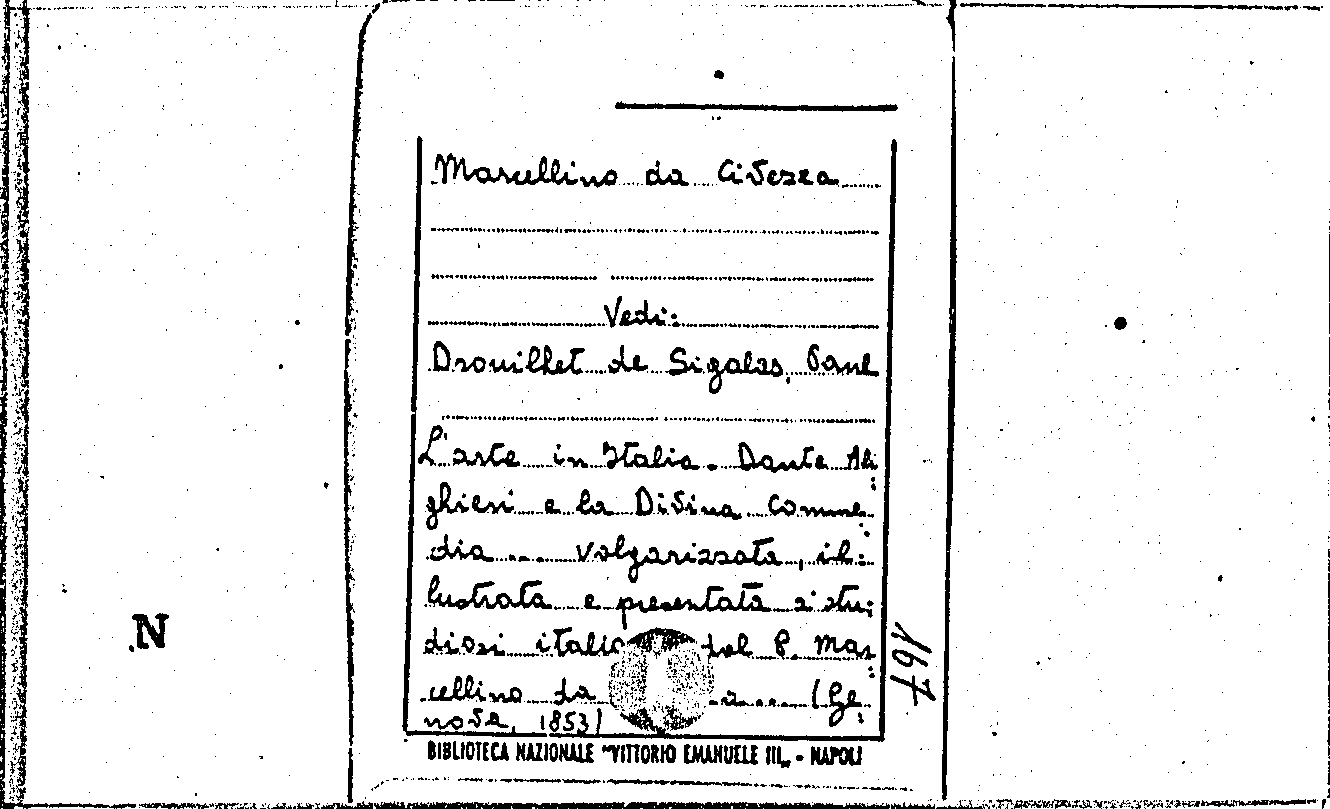 Marcellino da Civezza
Vedi:
Drouilhet de Sigalas, Paul
L'arte in Italia. Dante Ali:
ghieri e la Divina Comme:
dia ... volgarizzata, il:
lustrata e presentata a' stu:
diosi italia dal P. Mar:
cellino da a... (Ge:
nova, 1853)
BIBLIOTECA NAZIONALE "VITTORIO EMANUELE III„ - NAPOLI
N
167